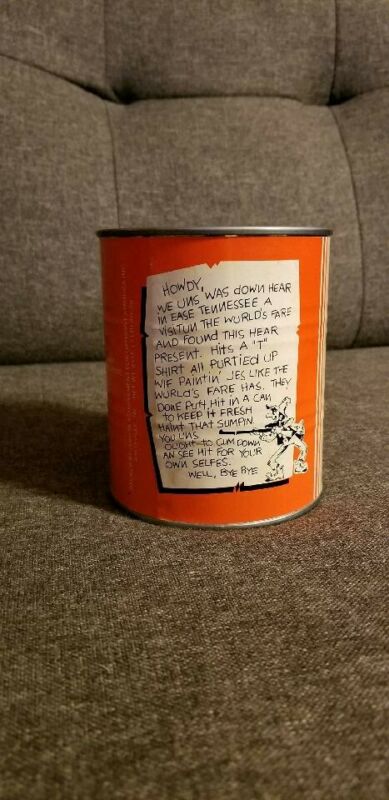 HOWDY,
WE UNS WAS DOWN HEAR
IN EASE TENNESSEE A
VISITUN THE WURLD'S FARE
AND FOUND THIS HEAR
PRESENT. HITS A "T"
SHIRT ALL PURTIED UP
WIF PAINTIN' JES LIKE THE
WURLD'S FARE HAS. THEY
DONE PUT HIT IN A CAN
TO KEEP IT FRESH
HAINT THAT SUMPIN.
YOU UNS
OUGHT TO CUM DOWN
AN SEE HIT FOR YOUR
OWN SELFES.
WELL, BYE BYE